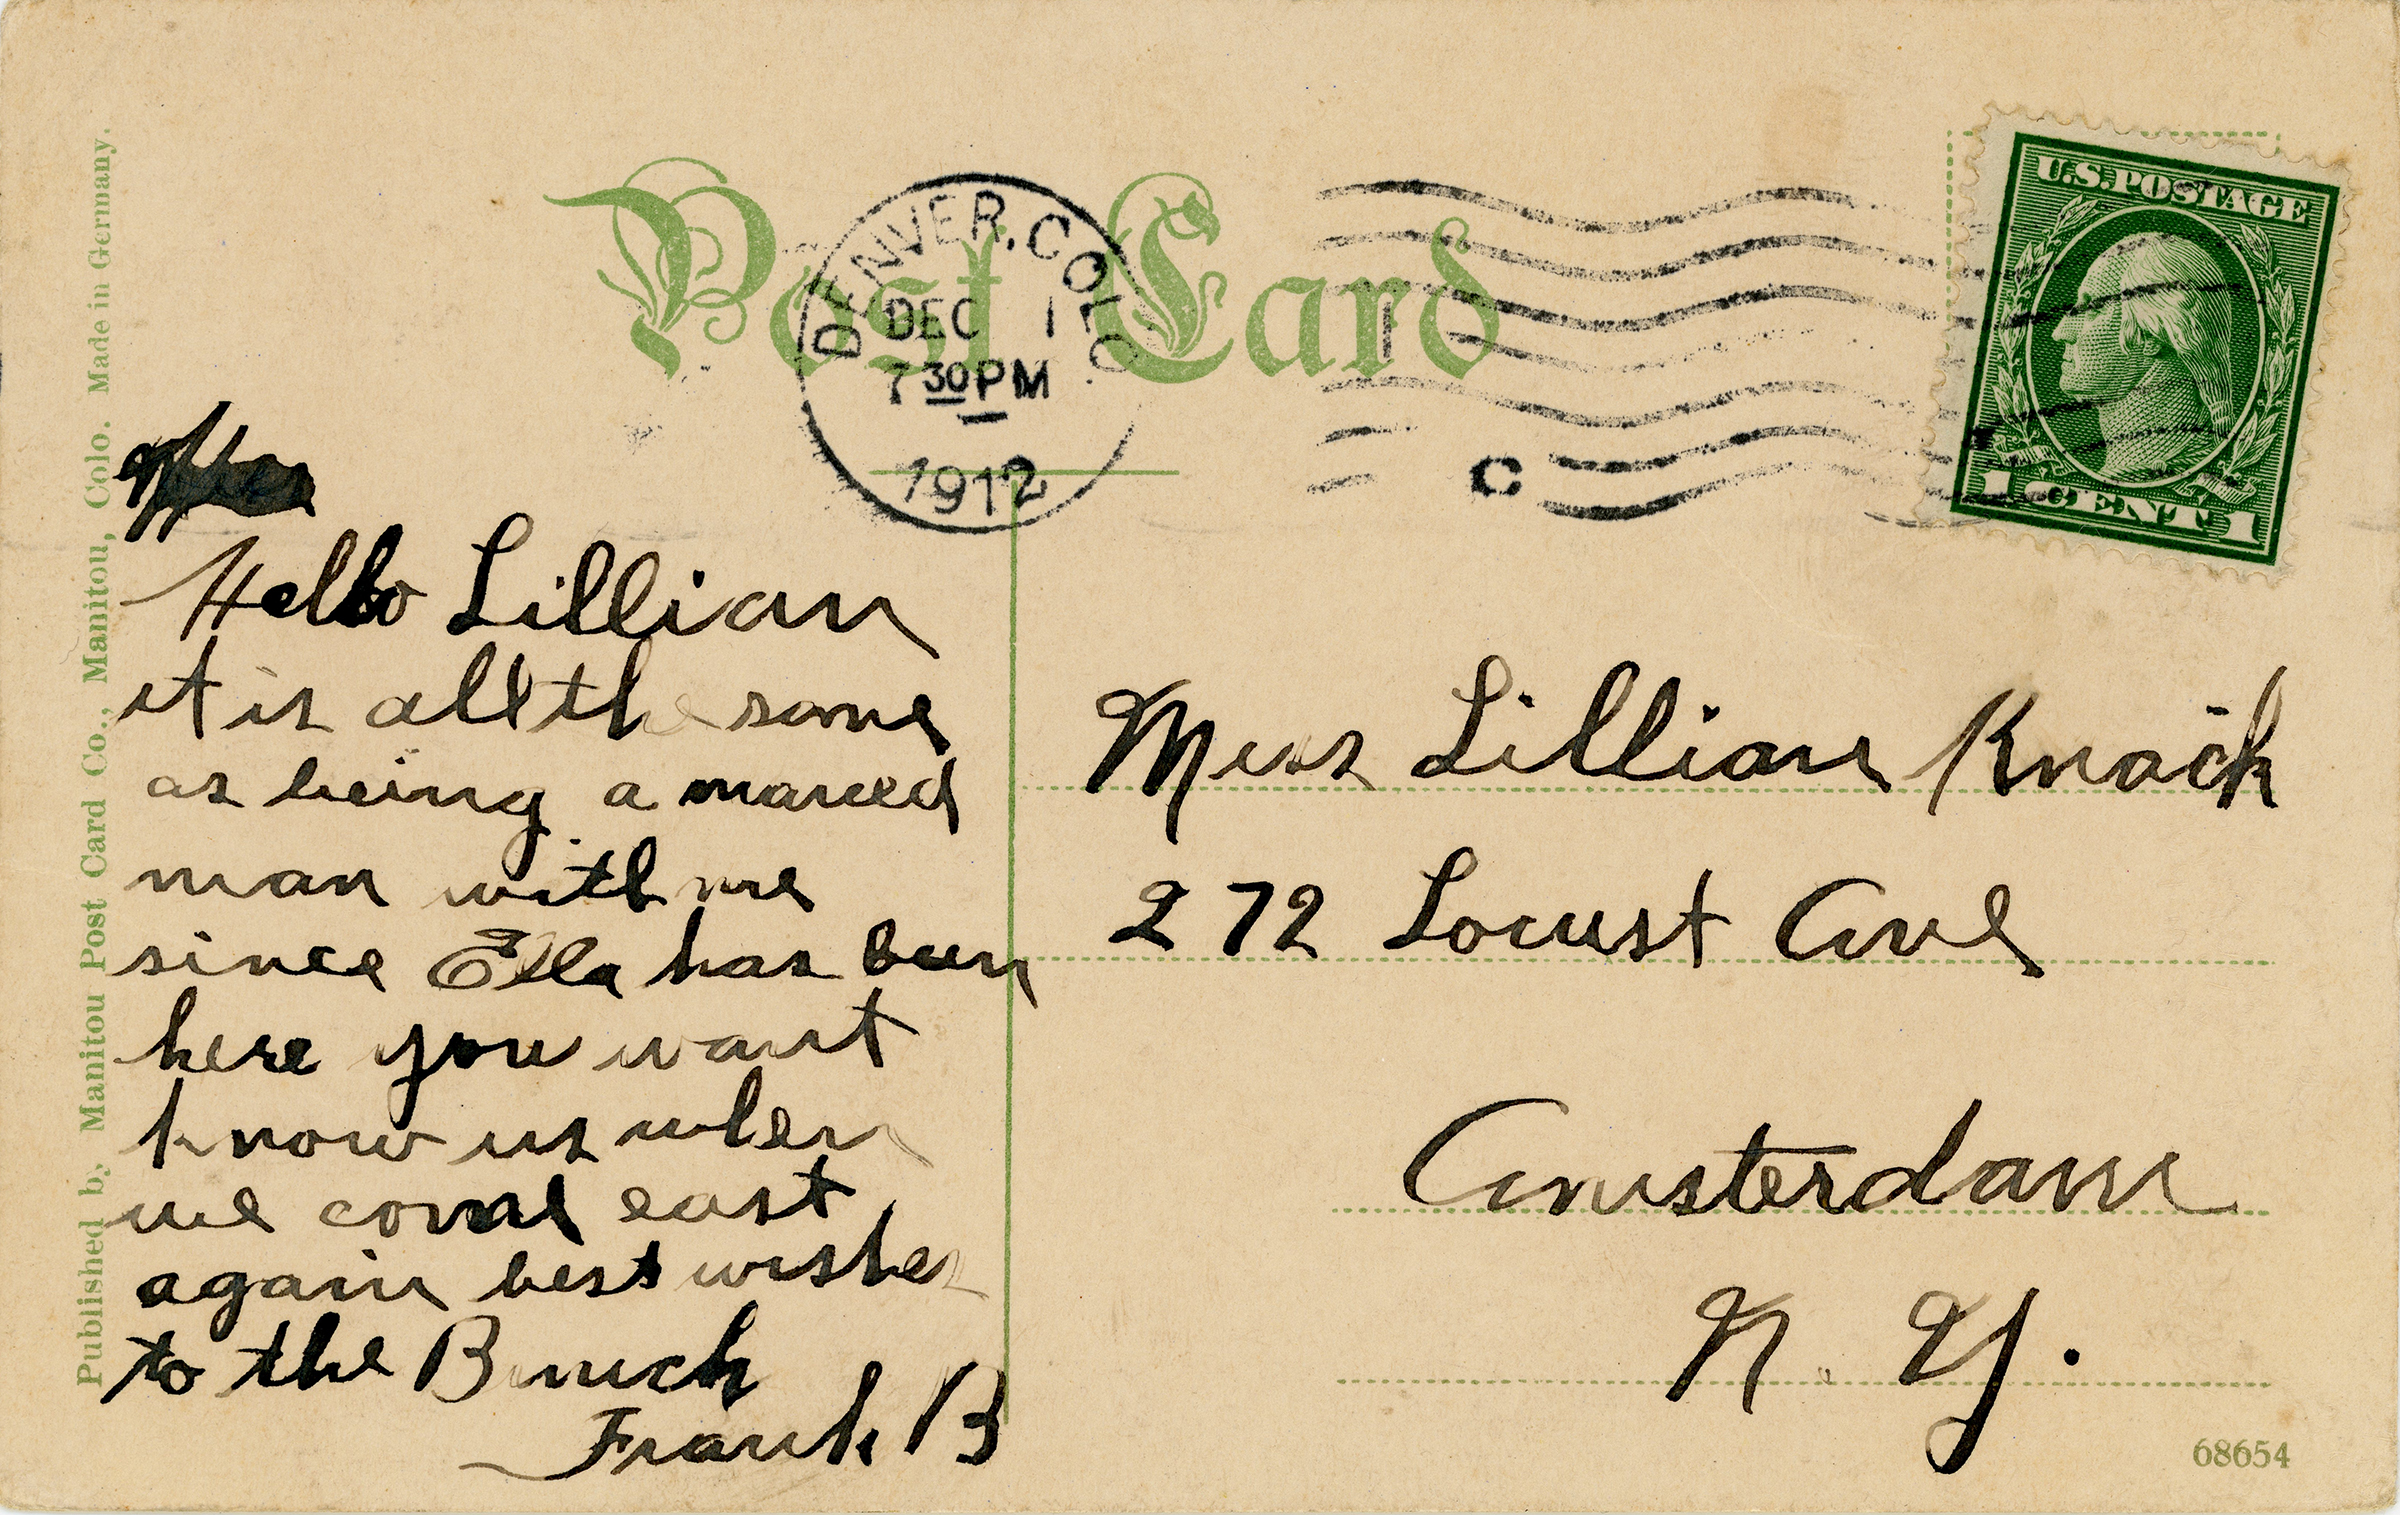 Post Card
DENVER, COLO.
DEC 1
7 30 PM
1912
C
U.S. POSTAGE
1 CENT 1
Hello Lillian
it is all the same
as being a maried
man with me
since Ella has been
here you want
know us when
we come east
again best wishes
to the Bunch
Frank B
Miss Lillian Knack
272 Locust Ave
Amsterdam
N. Y.
68654
Published by Manitou Post Card Co., Manitou, Colo. Made in Germany.